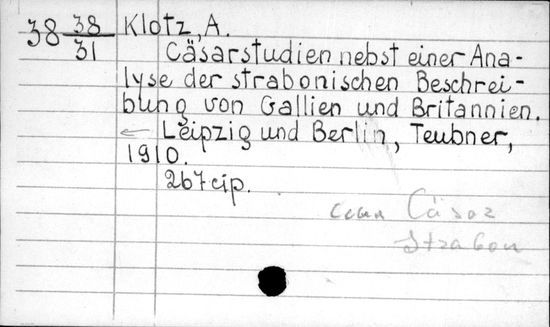 38 38/31 Klotz, A.
Cäsarstudien nebst einer Ana-
lyse der strabonischen Beschrei-
bung von Gallien und Britannien.
← Leipzig und Berlin, Teubner,
1910.
267 cip.
Cäsar
Strabon